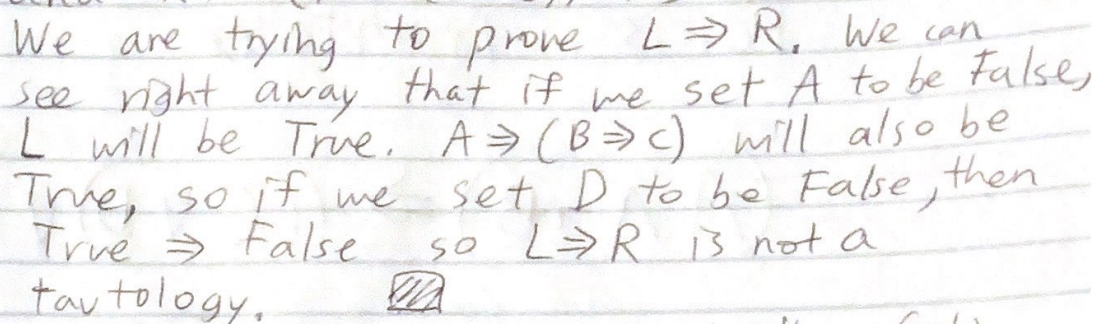 We are trying to prove L ⇒ R. We can
see right away that if we set A to be False,
L will be True. A ⇒ (B ⇒ C) will also be
True, so if we set D to be False, then
True ⇒ False so L ⇒ R is not a
tautology.